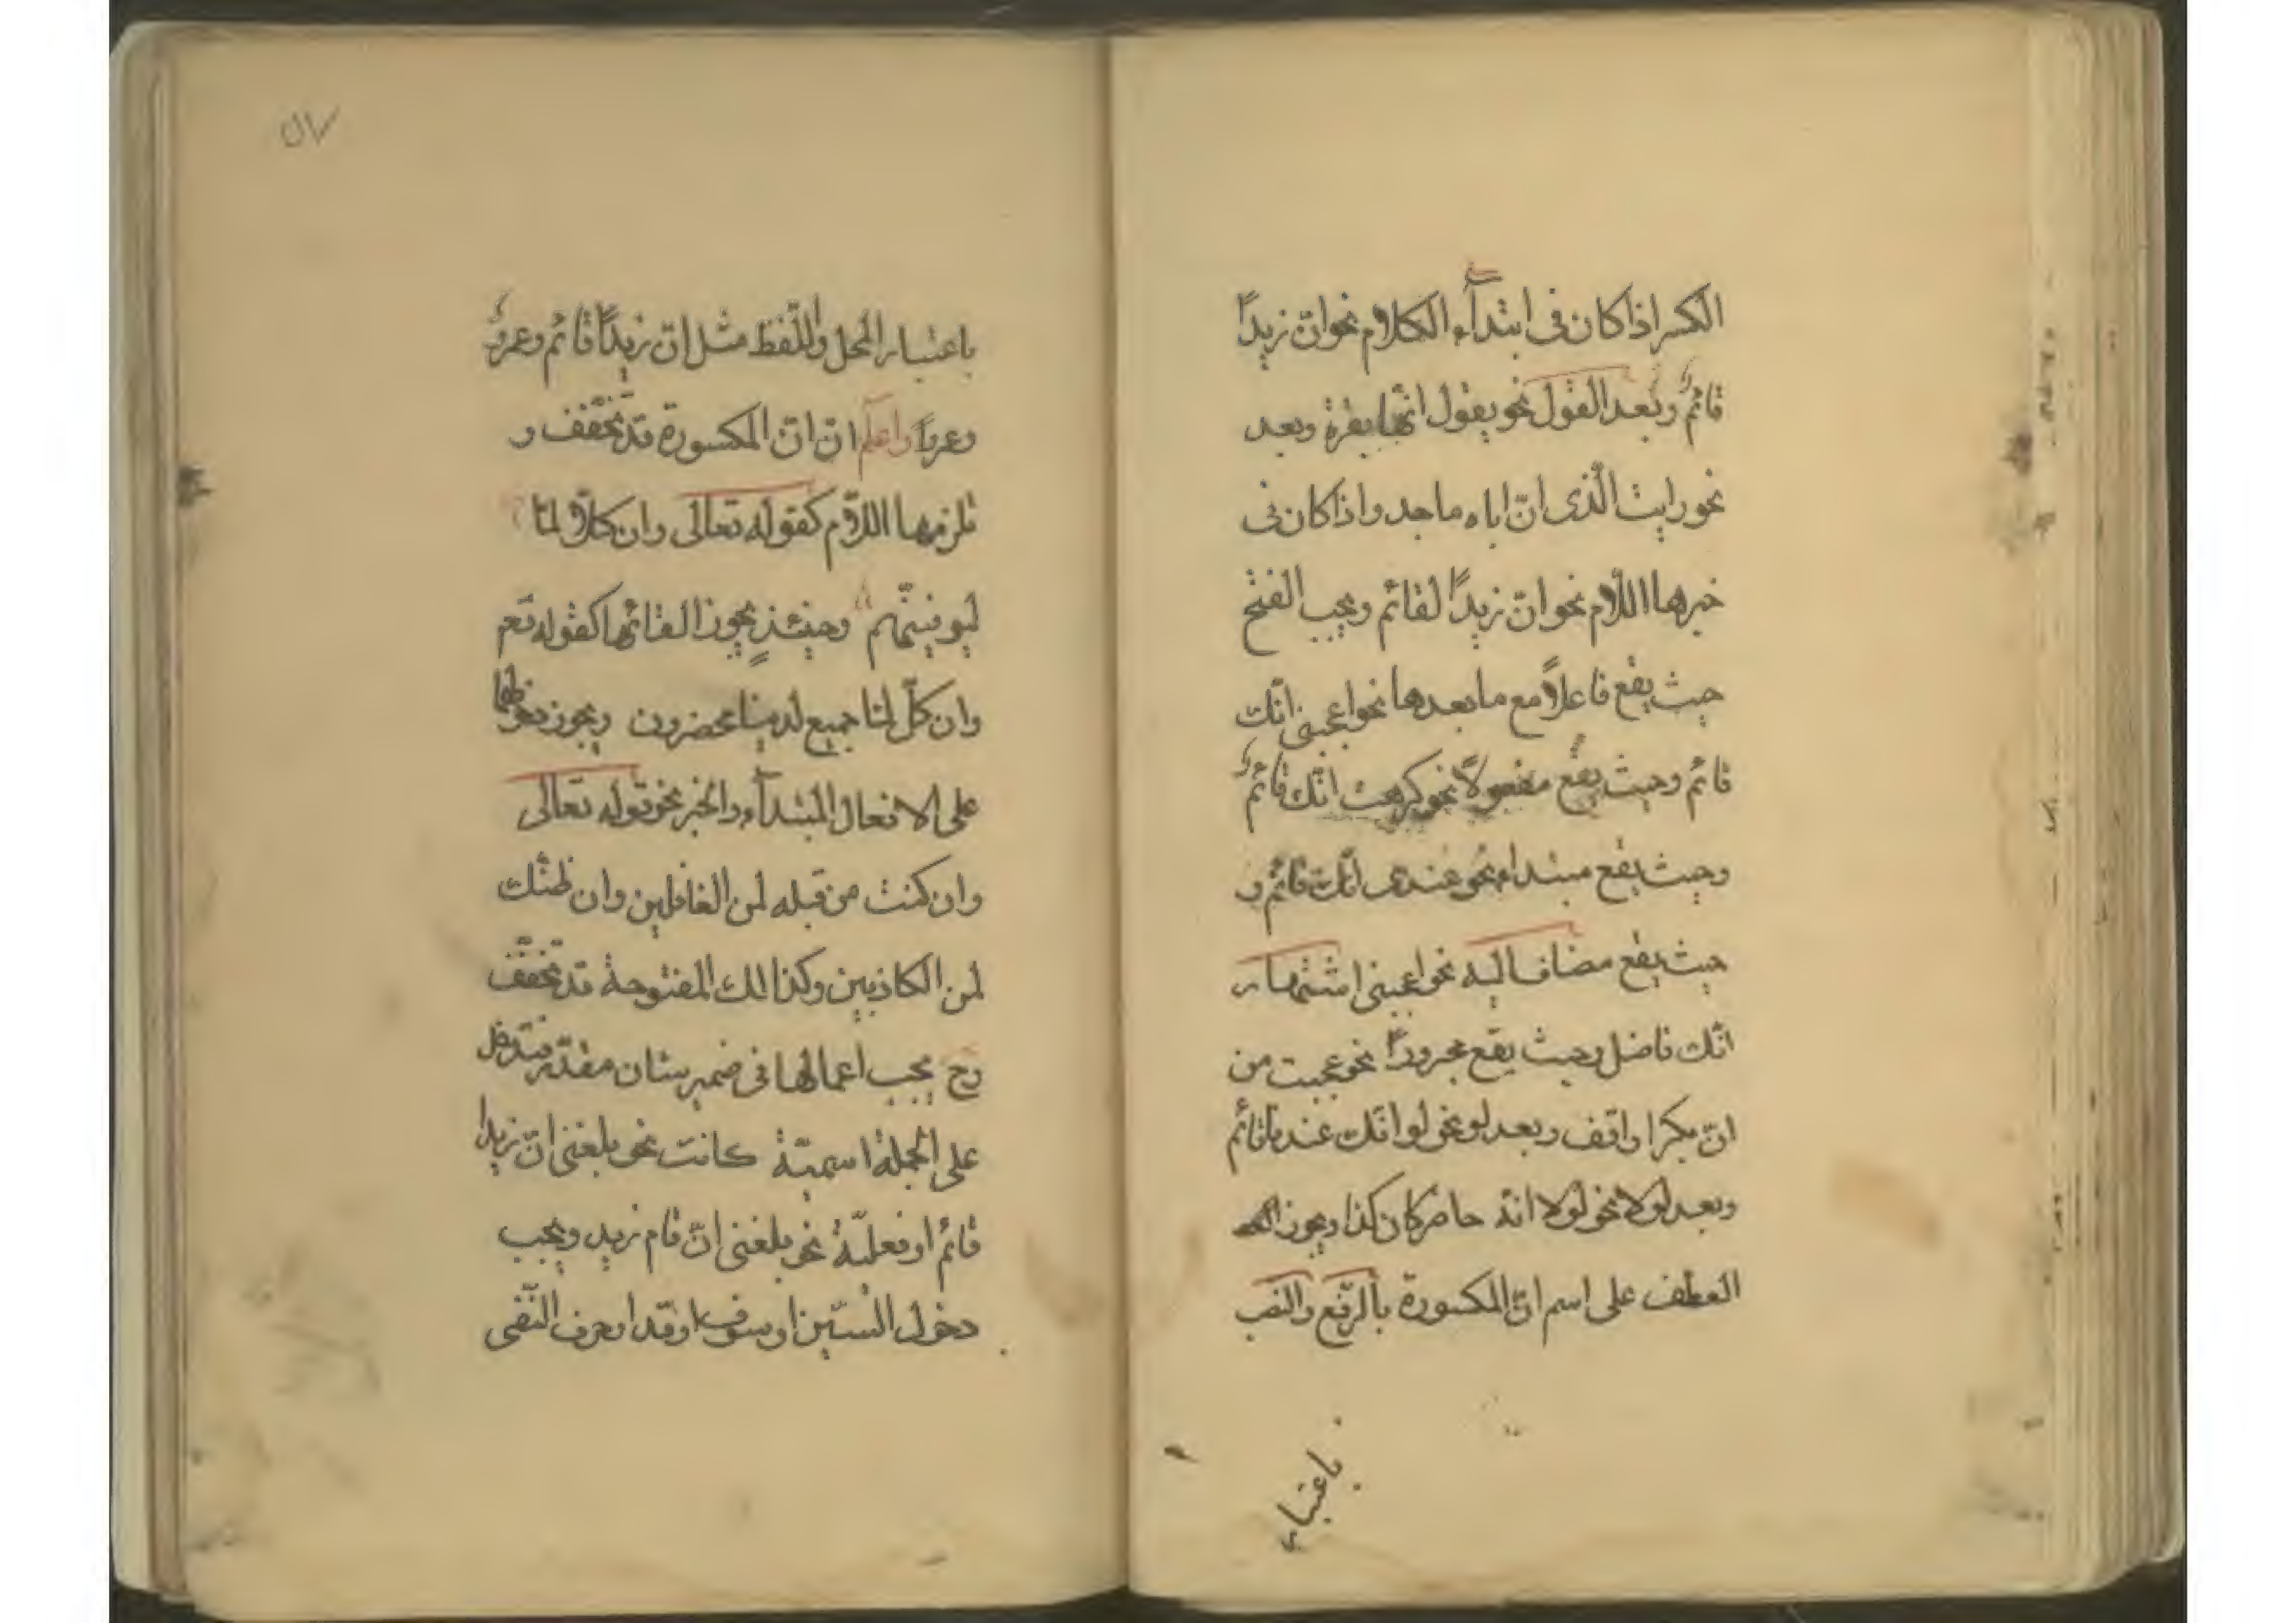 الكسر اذا كان فى ابتدآء الكلام نحو انّ زيداً
قائمٌ وبعد القول نحو يقول انّها بقرة وبعد
نحو رايت الّذى انّ اباه ماجد واذا كان فى
خبرها اللّام نحو انّ زيداً لقائم ويجب الفتح
حيث يقع فاعلاً مع ما بعدها نحو اعجبنى انّك
قائم وحيث يقع مفعولاً نحو كرهت انّك قائمٌ
وحيث يقع مبتداء نحو عندى انّك قائم و
حيث يقع مضافا ليه نحو اعجبنى اشتهار
انّك فاضل وحيث يقع مجروراً نحو عجبت من
انّ بكرا واقف وبعد لو نحو لو انّك عندنا قائم
وبعد لولا نحو لولا انّه حاضر كان كذا ويجوز
العطف على اسم انّ المكسورة بالرّفع والنصب
باعتبار
٥٧
باعتبار المحل واللّفظ مثل انّ زيداً قائم وعمروٌ
وعمرواً واعلم انّ انّ المكسورة قد تخفّف و
تلزمها اللّام كقوله تعالى وان كلّاً لمّا
ليوفينّهم وحينئذٍ يجوز القائها كقوله تعم
وان كلّ لمّا جميع لدينا محضرون ويجوز دخولها
على الافعال المبتدآء والخبر نحو قوله تعالى
وان كنت من قبله لمن الغافلين وان نظنّك
لمن الكاذبين وكذالك المفتوحة قد تخفّف
وح يجب اعمالها فى ضمير شان مقدّر فتدخل
على الجملة اسميّة كانت نحو بلغنى انّ زيدا
قائم او فعليّة نحو بلغنى انّ قام زيد ويجب
دخول السّين او سوف او قد او حرف النّفى